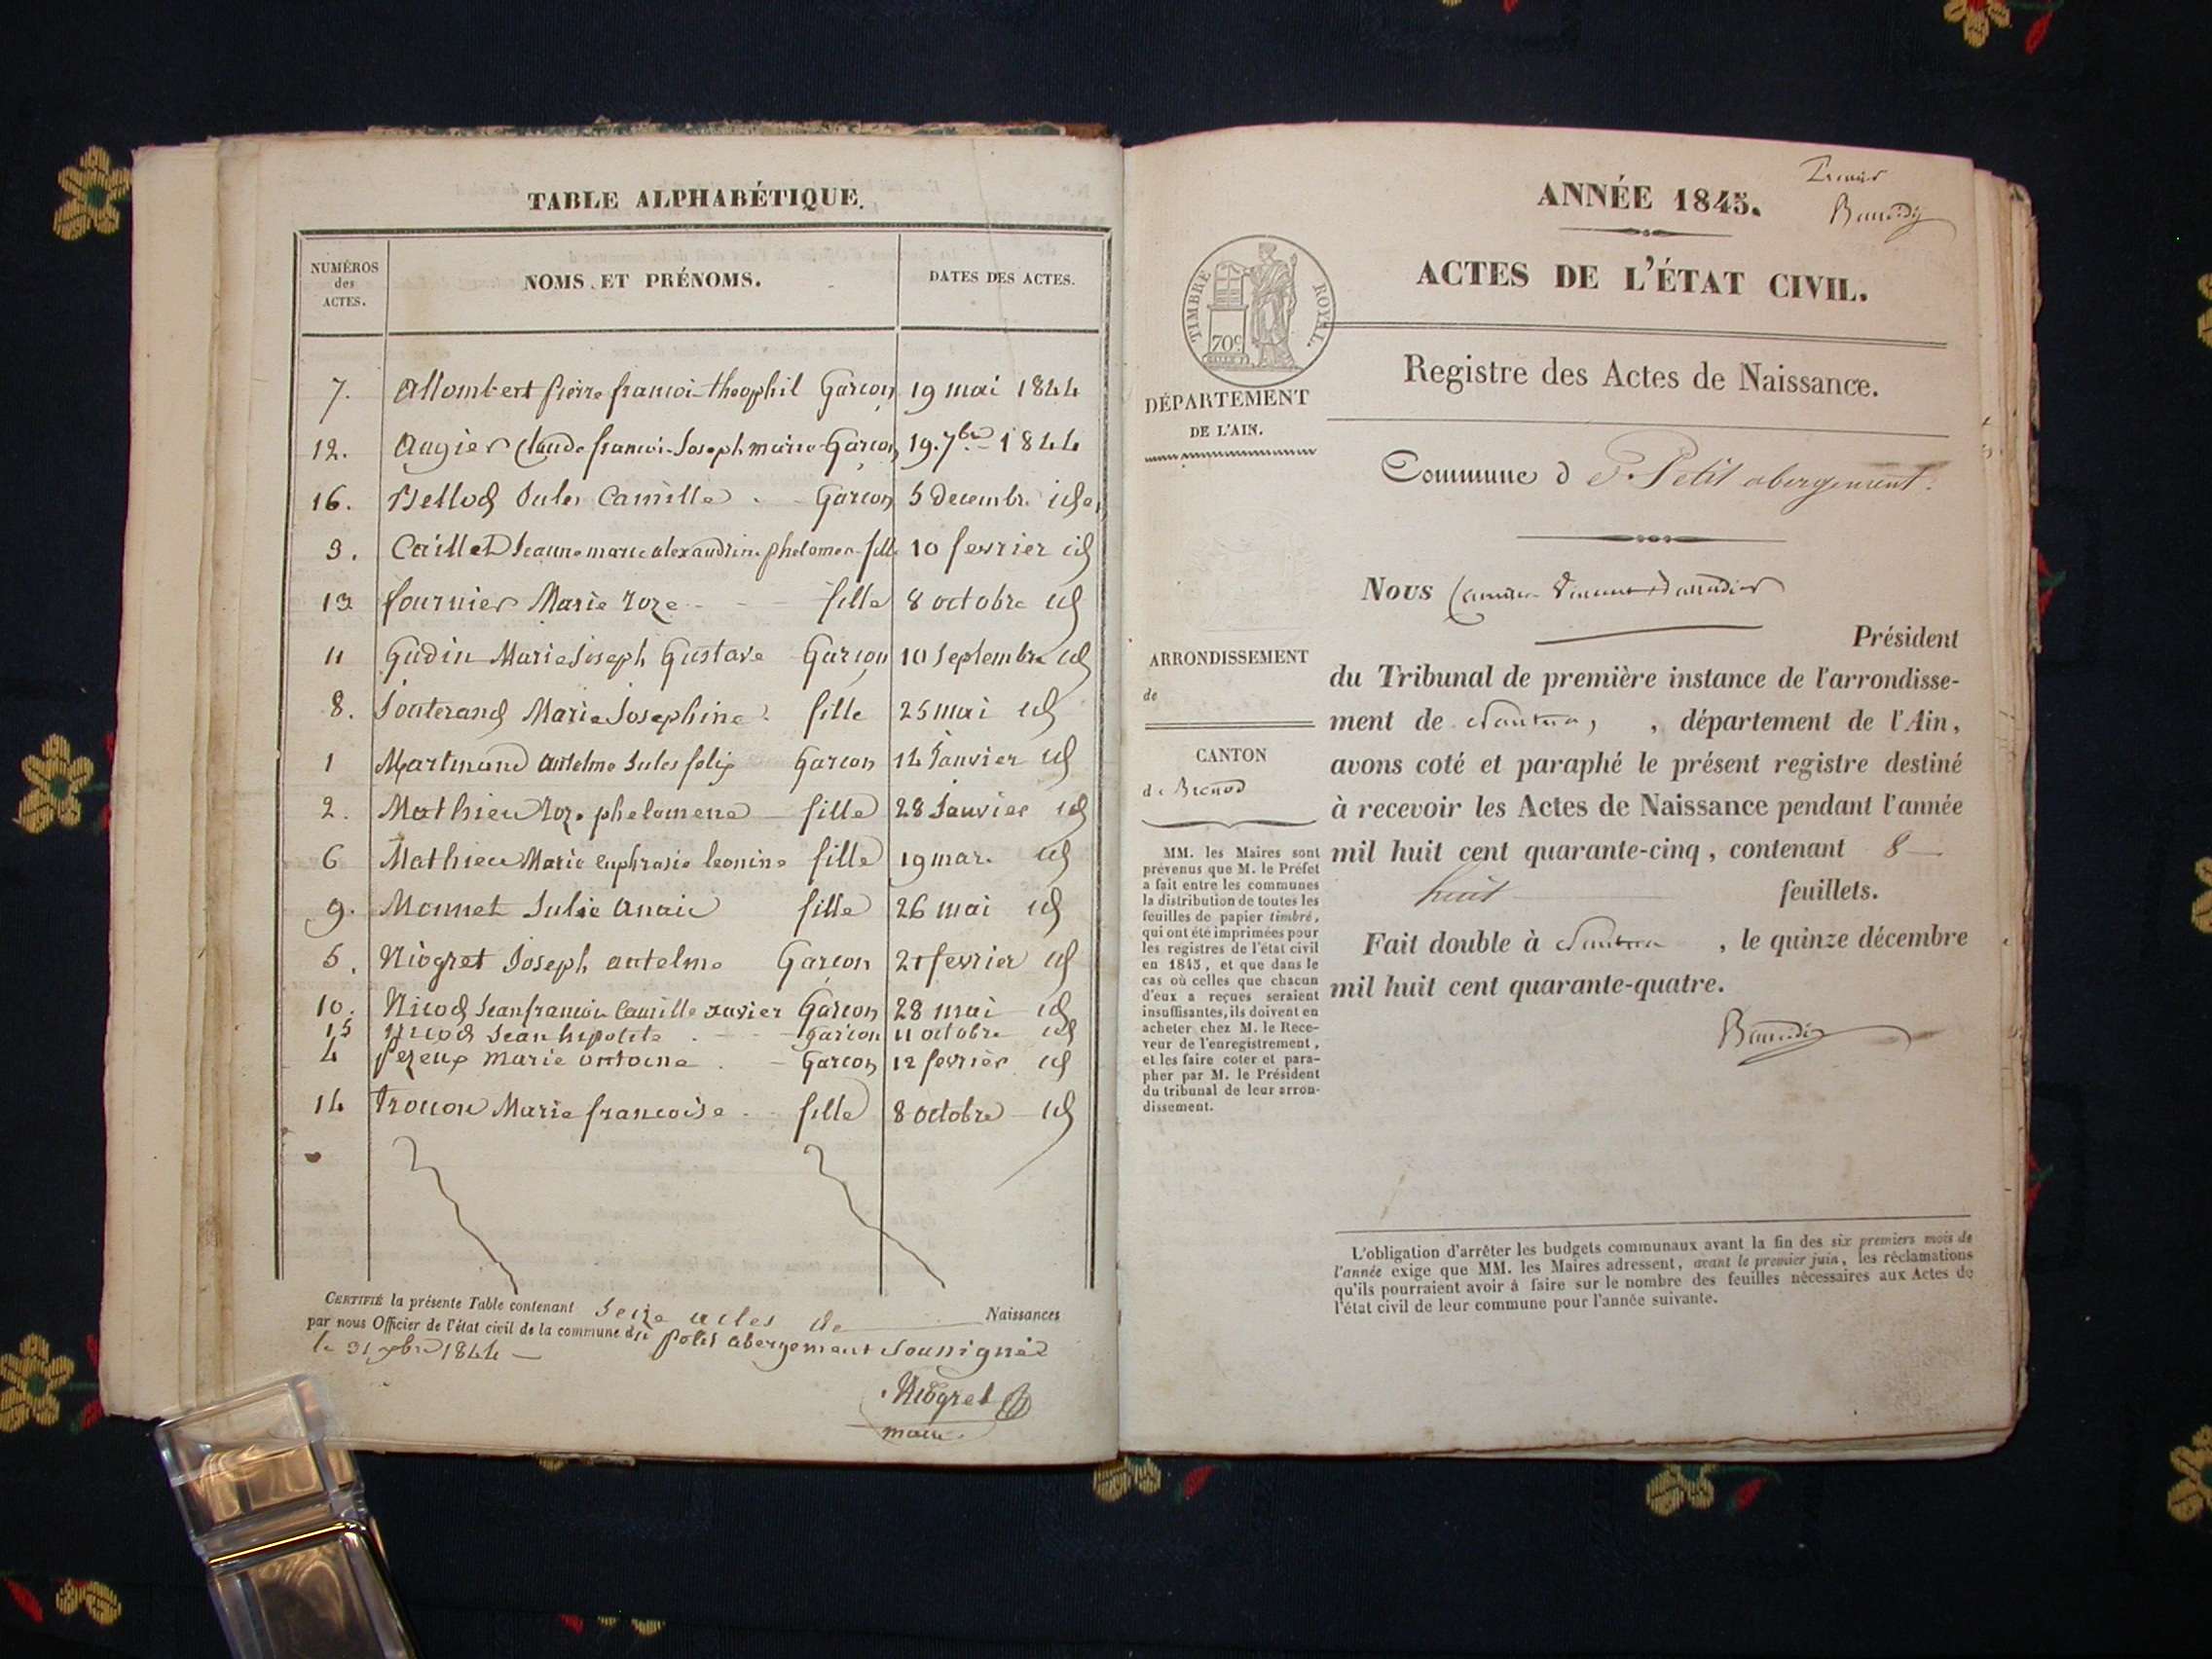 TABLE ALPHABÉTIQUE.
NUMÉROS
des
ACTES.
NOMS ET PRÉNOMS.
DATES DES ACTES.
7. Allombert pierre francoi theophil Garcon 19 mai 1844
12. Augier Claude francoi Joseph marie Garcon 19. 7bre 1844
16. Bellod Jules Camille Garcon 5 decembre id
3. Caillet Jeanne marie alexandrine phelomen fille 10 fevrier id
13 fournier Marie roze fille 8 octobre id
11 Gudin Marie Joseph Gustave Garcon 10 septembre id
8. Jouterand Marie Josephine fille 25 mai id
1 Martinand antelme Jules felix Garcon 14 Janvier id
2. Mathieu roze phelomene fille 28 Janvier id
6 Mathieu Marie euphrasie leonine fille 19 mars id
9. Monnet Julie anaic fille 26 mai id
5. Niogret Joseph antelme Garcon 21 fevrier id
10. Nicod Jean francoi Camille xavier Garcon 28 mai id
15 Nicod Jean hipolite Garcon 11 octobre id
4 pezeux marie antoine Garcon 12 fevrier id
14 trocon Marie francoise fille 8 octobre id
CERTIFIÉ la présente Table contenant Seize actes de Naissances
par nous Officier de l'état civil de la commune du petit abergement soussigné
le 31 xbre 1844
Niogret
maire
ANNÉE 1845.
Premier
ACTES DE L'ÉTAT CIVIL.
TIMBRE ROYAL.
70c
Registre des Actes de Naissance.
DÉPARTEMENT
DE L'AIN.
Commune d Petit abergement.
Nous
Président
du Tribunal de première instance de l'arrondisse-
ment de Nantua, , département de l'Ain,
avons coté et paraphé le présent registre destiné
à recevoir les Actes de Naissance pendant l'année
mil huit cent quarante-cinq, contenant 8
huit feuillets.
Fait double à Nantua , le quinze décembre
mil huit cent quarante-quatre.
ARRONDISSEMENT
de
CANTON
de Brenod
MM. les Maires sont
prévenus que M. le Préfet
a fait entre les communes
la distribution de toutes les
feuilles de papier timbré,
qui ont été imprimées pour
les registres de l'état civil
en 1845, et que dans le
cas où celles que chacun
d'eux a reçues seraient
insuffisantes, ils doivent en
acheter chez M. le Rece-
veur de l'enregistrement,
et les faire coter et para-
pher par M. le Président
du tribunal de leur arron-
dissement.
L'obligation d'arrêter les budgets communaux avant la fin des six premiers mois de
l'année exige que MM. les Maires adressent, avant le premier juin, les réclamations
qu'ils pourraient avoir à faire sur le nombre des feuilles nécessaires aux Actes de
l'état civil de leur commune pour l'année suivante.